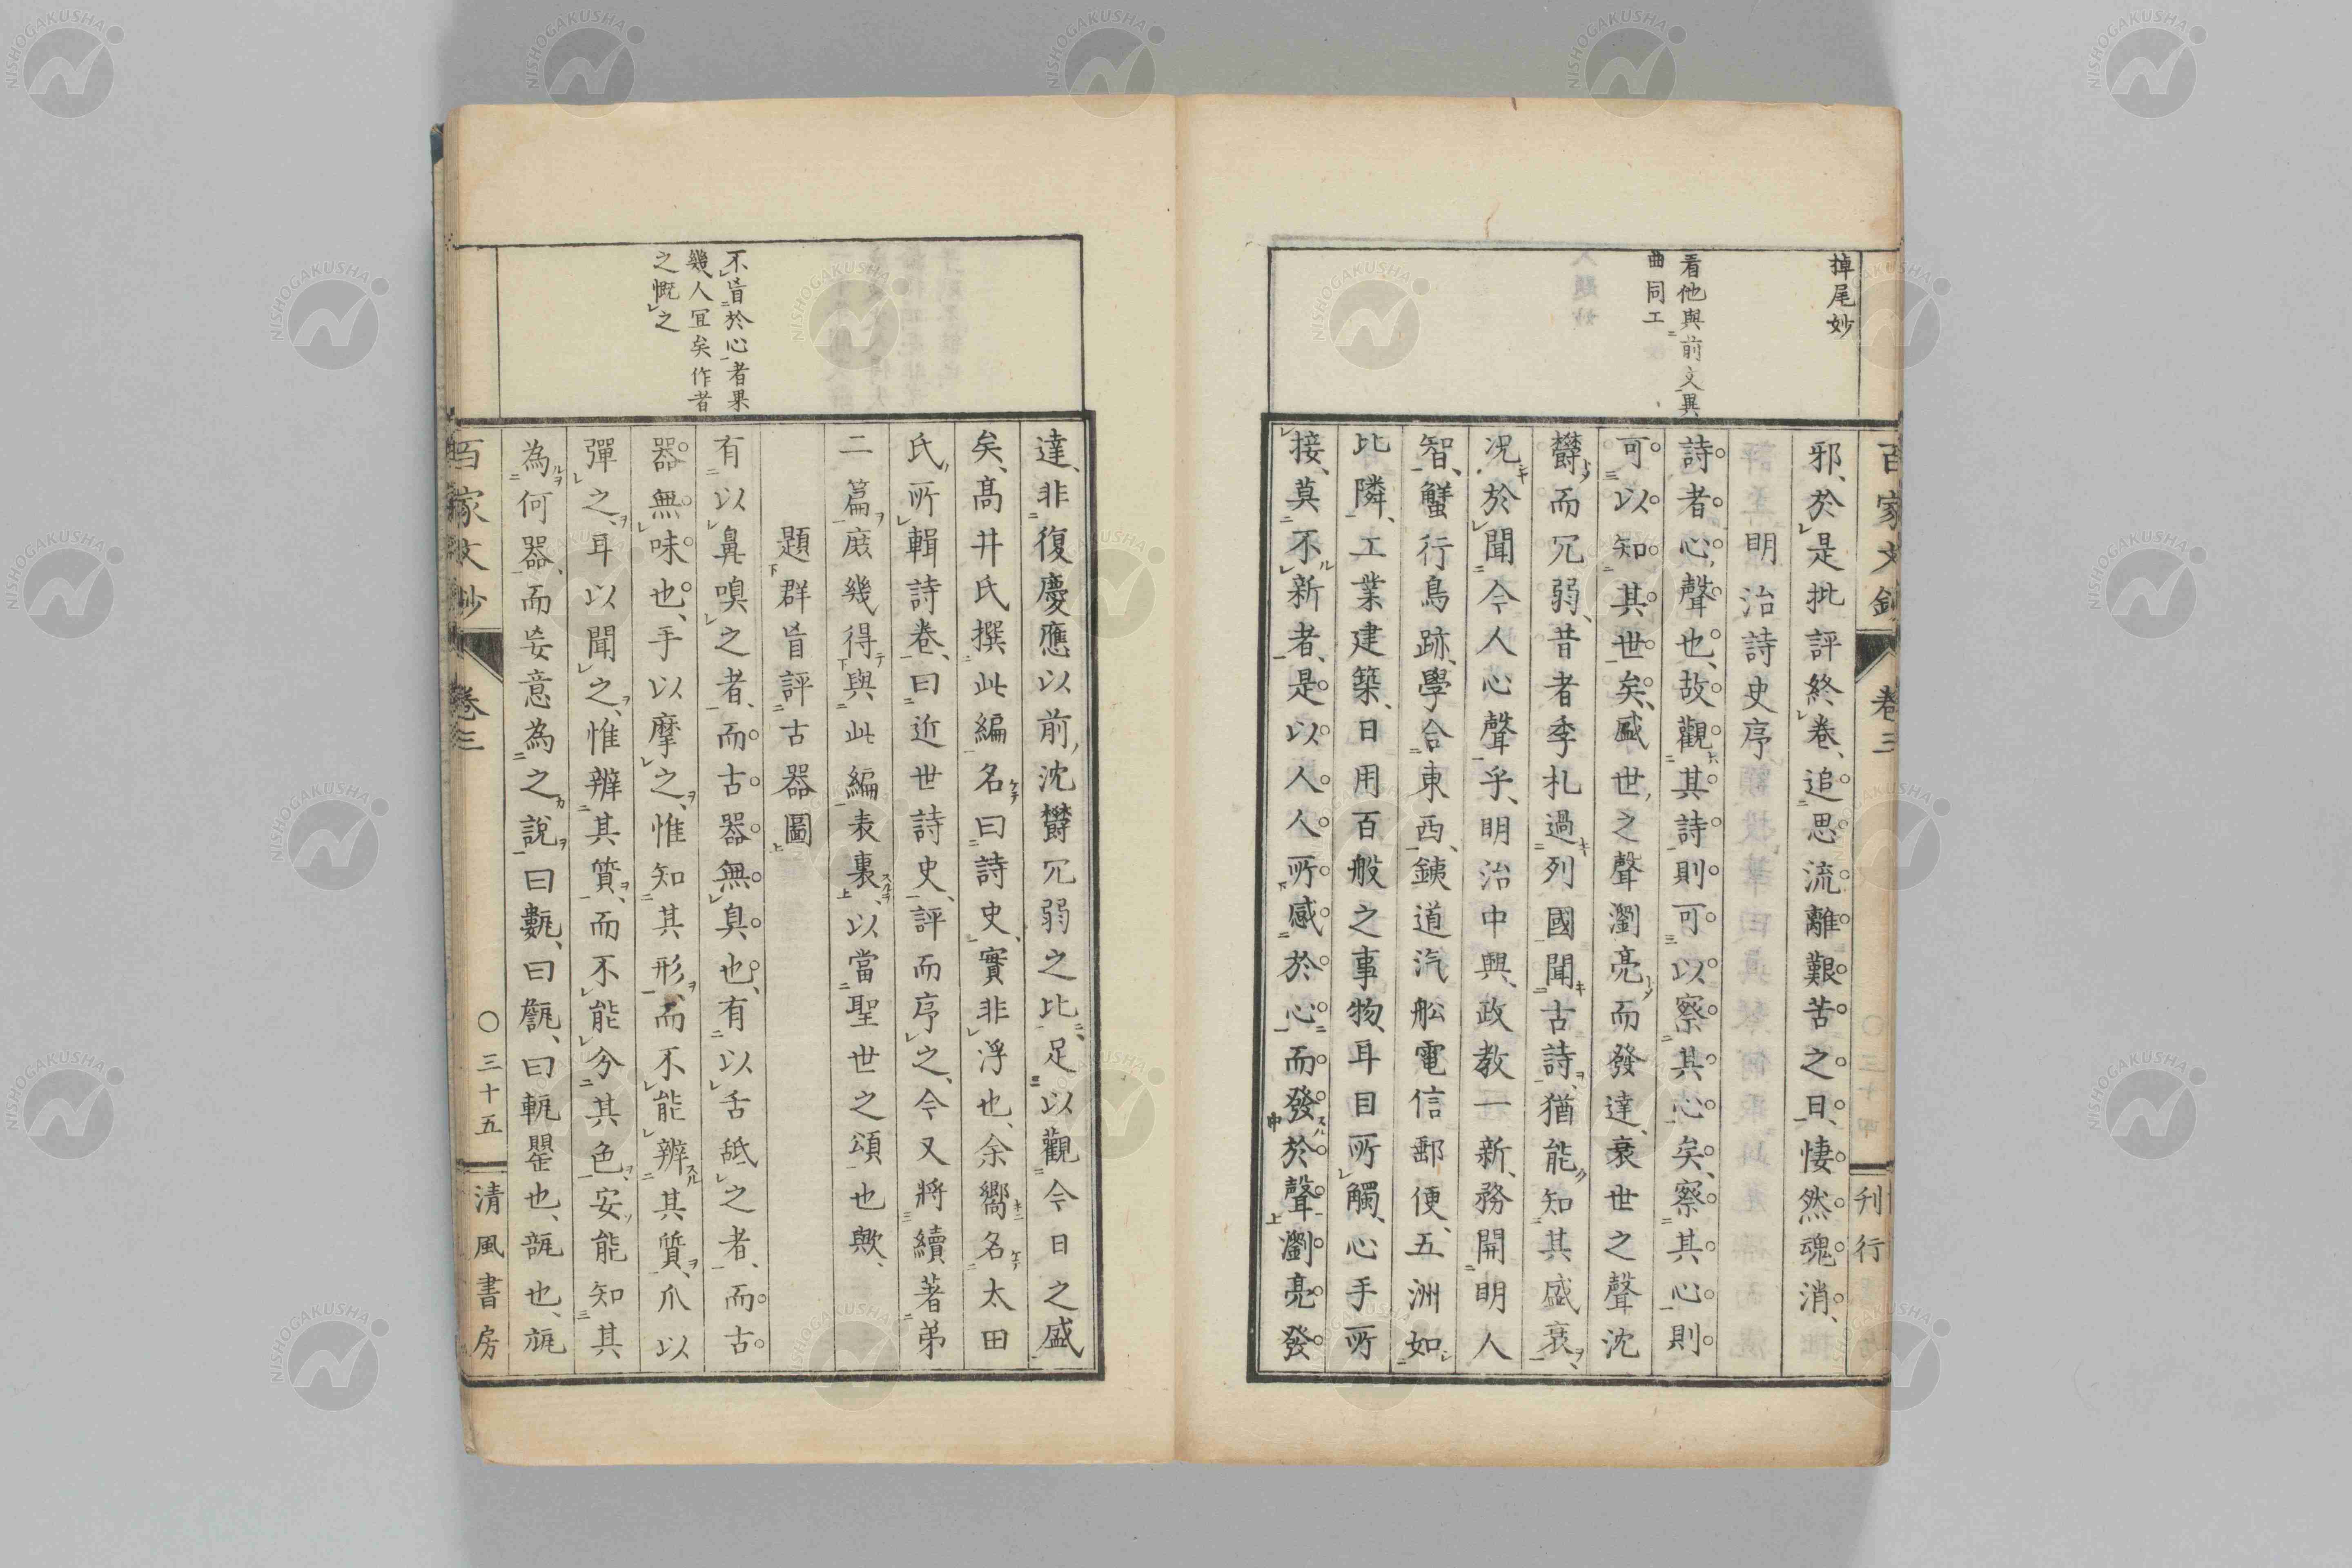 掉尾妙
看他與前文異
曲同工
百家文鈔
卷三
刊行
邪、於是批評終卷、追思流離艱苦之日、悽然魂消、
明治詩史序
詩者心聲也、故觀其詩則可以察其心矣、察其心則
可以知其世矣、盛世之聲瀏亮而發達、衰世之聲沈
鬱而冗弱、昔者季札過列國聞古詩、猶能知其盛衰、
况於聞今人心聲乎、明治中興、政教一新、務開明人
智、蟹行鳥跡、學合東西、銕道汽舩電信郵便、五洲如
比隣、工業建築、日用百般之事物、耳目所觸、心手所
接、莫不新者、是以人人所感於心而發於聲瀏亮發
不盲於心者果
幾人宜矣作者
之慨之
達、非復慶應以前、沈鬱冗弱之比、足以觀今日之盛
矣、髙井氏撰此編名曰詩史、實非浮也、余嚮名太田
氏所輯詩卷、曰近世詩史、評而序之、今又將續著弟
二篇、庶幾得與此編表裏、以當聖世之頌也歟、
題群盲評古器圖
有以鼻嗅之者、而古器無臭也、有以舌舐之者、而古
器無味也、手以摩之、惟知其形、而不能辨其質、爪以
彈之、耳以聞之、惟辨其質、而不能分其色、安能知其
為何器、而妄意為之說、曰甎、曰甒、曰瓶罌也、瓿也、瓬
百家文鈔
卷三
○三十五
清風書房